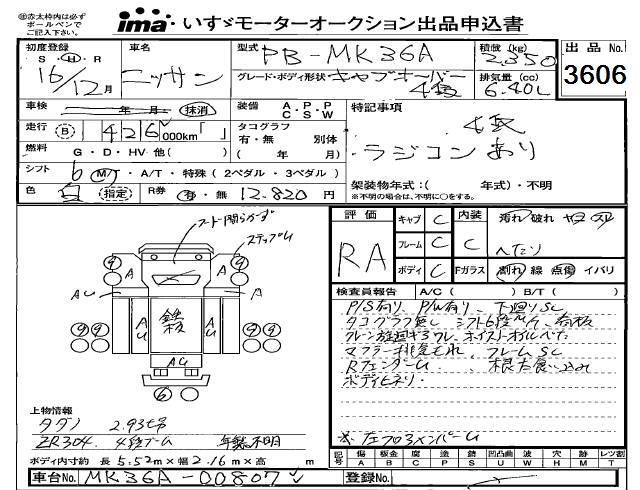 赤太枠内は必ず
ボールペンで
ご記入下さい
ima いすゞモーターオークション出品申込書
初度登録
S・H・R
16/12月
車名
ニッサン
型式 PB-MK36A
グレード・ボディ形状 キャブオーバー
4段
積載(kg)
2,350
排気量(cc)
6.40L
出品No.
3606
車検 年 月 抹消
装備 A.P.P
C.S.W
特記事項
4段
ラジコンあり
走行 B 1426 000km「 」
タコグラフ
有・無 別体
( 年 月)
燃料 G・D・HV・他( )
シフト 6 M/T・A/T・特殊(2ペダル・3ペダル)
色 白 指定 R券 有・無 12,820円
架装物年式:( 年式)・不明
※不明の場合は、不明に○をする。
フード開らかず
ステップU
A
AU
AU
AU
A
A
鉄板
AU
6
評価
RA
キャブ C
フレーム C
ボディ C
内装 C
Fガラス
汚れ 破れ ヤコ スレ
へたり
割れ 線 点傷 イバリ
検査員報告 A/C( ) B/T( )
P/S有り P/W有り 下廻りSC
タコグラフ無し シフト6段
マフラー排気もれ フレームSC
RフェンダーU
※左フロ3メンバーU
上物情報
タダノ 2.93t吊
ZR304 4段ブーム 年式不明
ボディ内寸約 長 5.52m×幅 2.16m×高 m
車台No. MK36A-00807
記号 傷 板金 腐 塗 錆 凹凸曲 波 穴 跡 レツ割
A B C P S U W H M T
登録No.